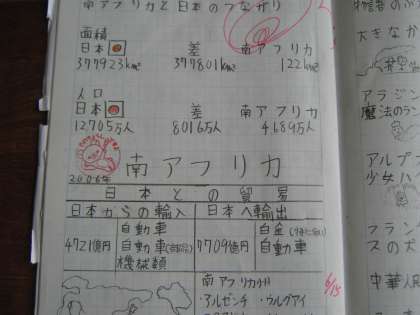 南アフリカと日本のつながり
面積
日本 差 南アフリカ
377923km² 377801km² 122km²
人口
日本 差 南アフリカ
12705万人 8016万人 4689万人
2006年
南アフリカ
日本との貿易
日本からの輸入 日本へ輸出
4721億円 自動車 自動車(部品) 機械類 7704億円 白金 自動車
南アフリカ
・アルゼンチ ・ウルグアイ
6/15
大きなか
アラジン
魔法のラン
アルプ
少女ハ
フラン
スの犬
中華人民